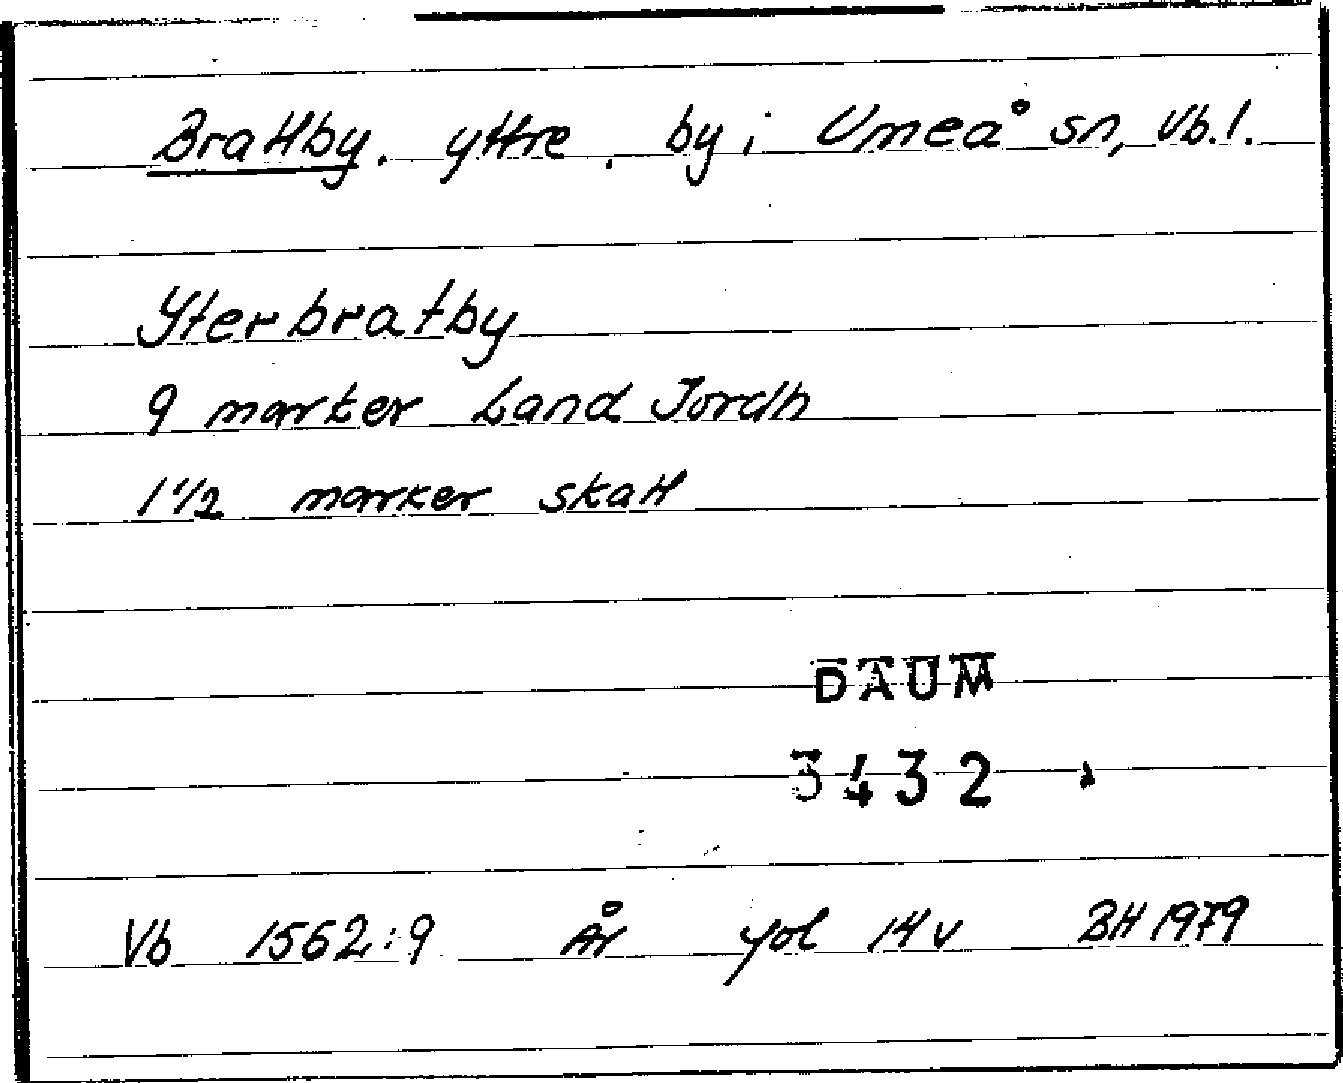 Brattby, yttre, by i Umeå sn, Vb.l.
Yterbratby
9 marker Land Jordh
1 1/2 marker skatt
DAUM
3432
Vb 1562:9 År fol 14 v BH 1979